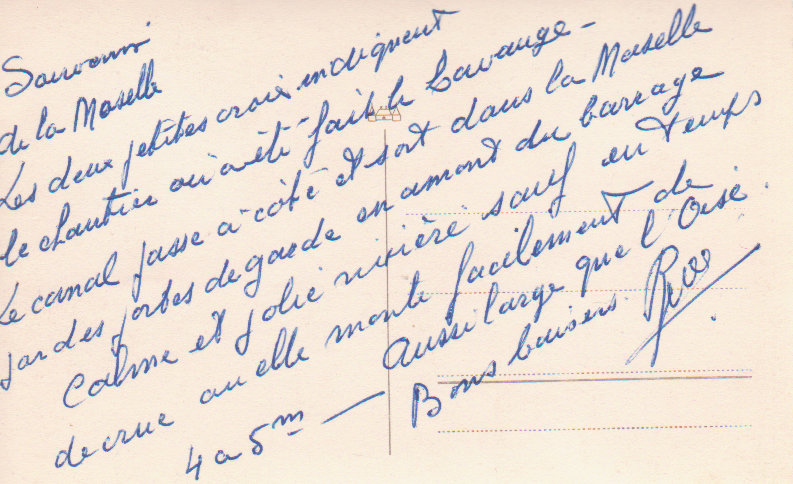 Souvenir
de la Moselle
Les deux petites croix indiquent
le chantier où a été fait le barrage -
Le canal passe à côté et sort dans la Moselle
par des portes de garde en amont du barrage
Calme et jolie rivière sauf en temps
de crue ou elle monte facilement de
4 a 5m — aussi large que l'Oise.
Bons baisers.